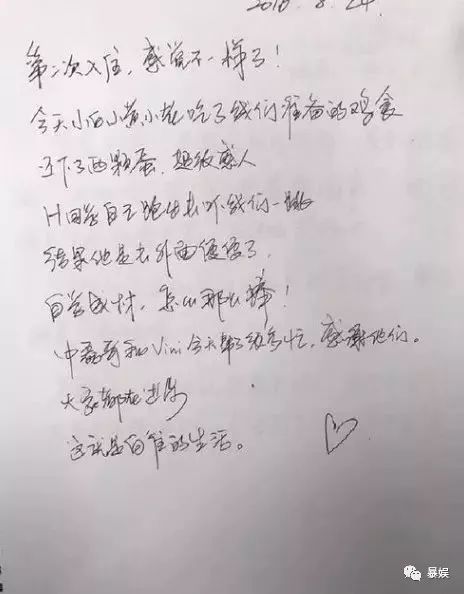 2018. 8. 24.
第二次入住,感觉不一样了!
今天小白小黄小花吃了我们准备的鸡食
还下了两颗蛋,超级感人
H回家自己跑出去吓我们一跳
结果他是去外面便便了,
自学成材,怎么那么棒!
中磊哥和Vini今天帮了很多忙,感谢他们。
大家都在进步
这就是向往的生活。
暴娱